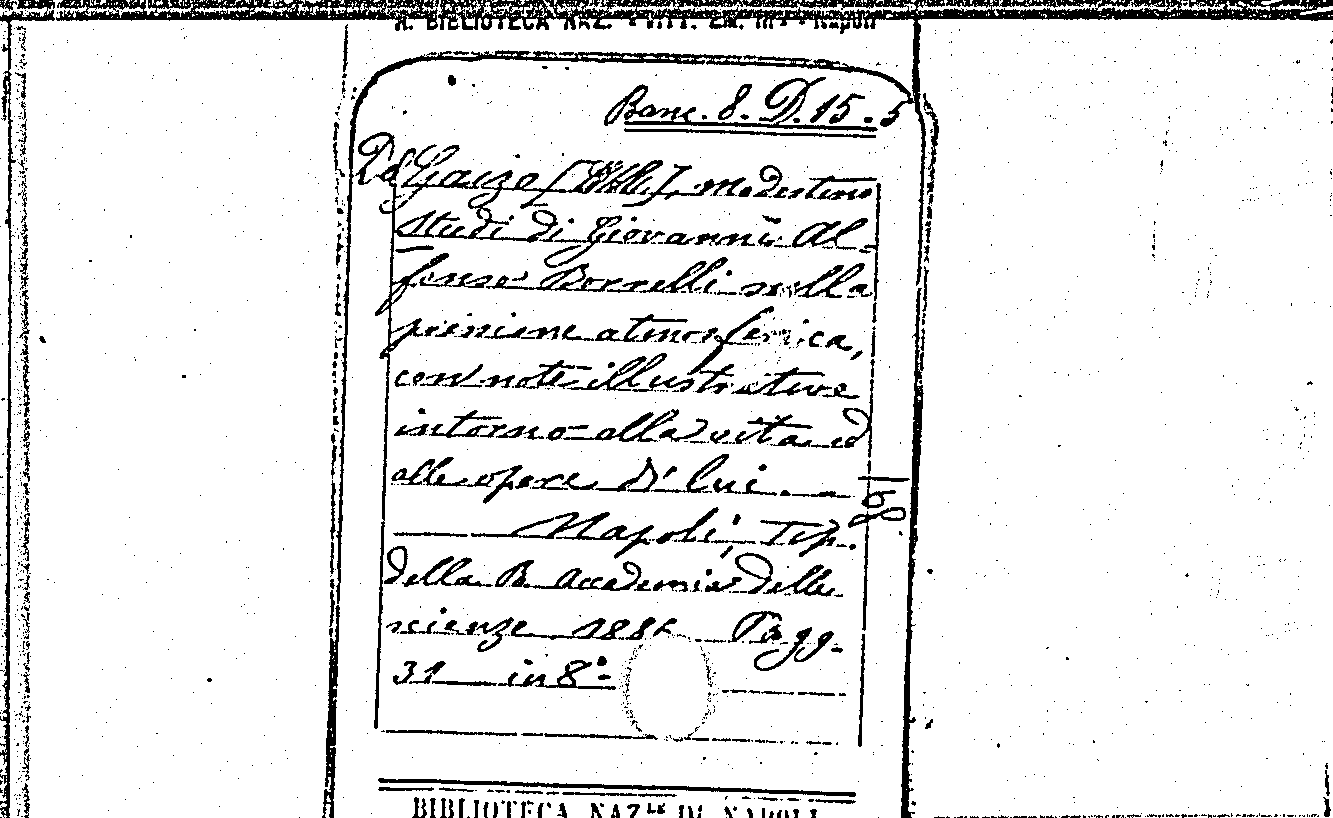 R. BIBLIOTECA NAZ. - VITT. EM. III - Napoli
Banc. 8. D. 15. 5
Del Gaizo Modestino
Studi di Giovanni Al-
fonso Borrelli sulla
pressione atmosferica,
con note illustrative
intorno alla vita ed
alle opere di lui.
Napoli, Tip.
della R. Accademia delle
scienze Pagg.
31 in 8º
BIBLIOTECA NAZLE DI NAPOLI